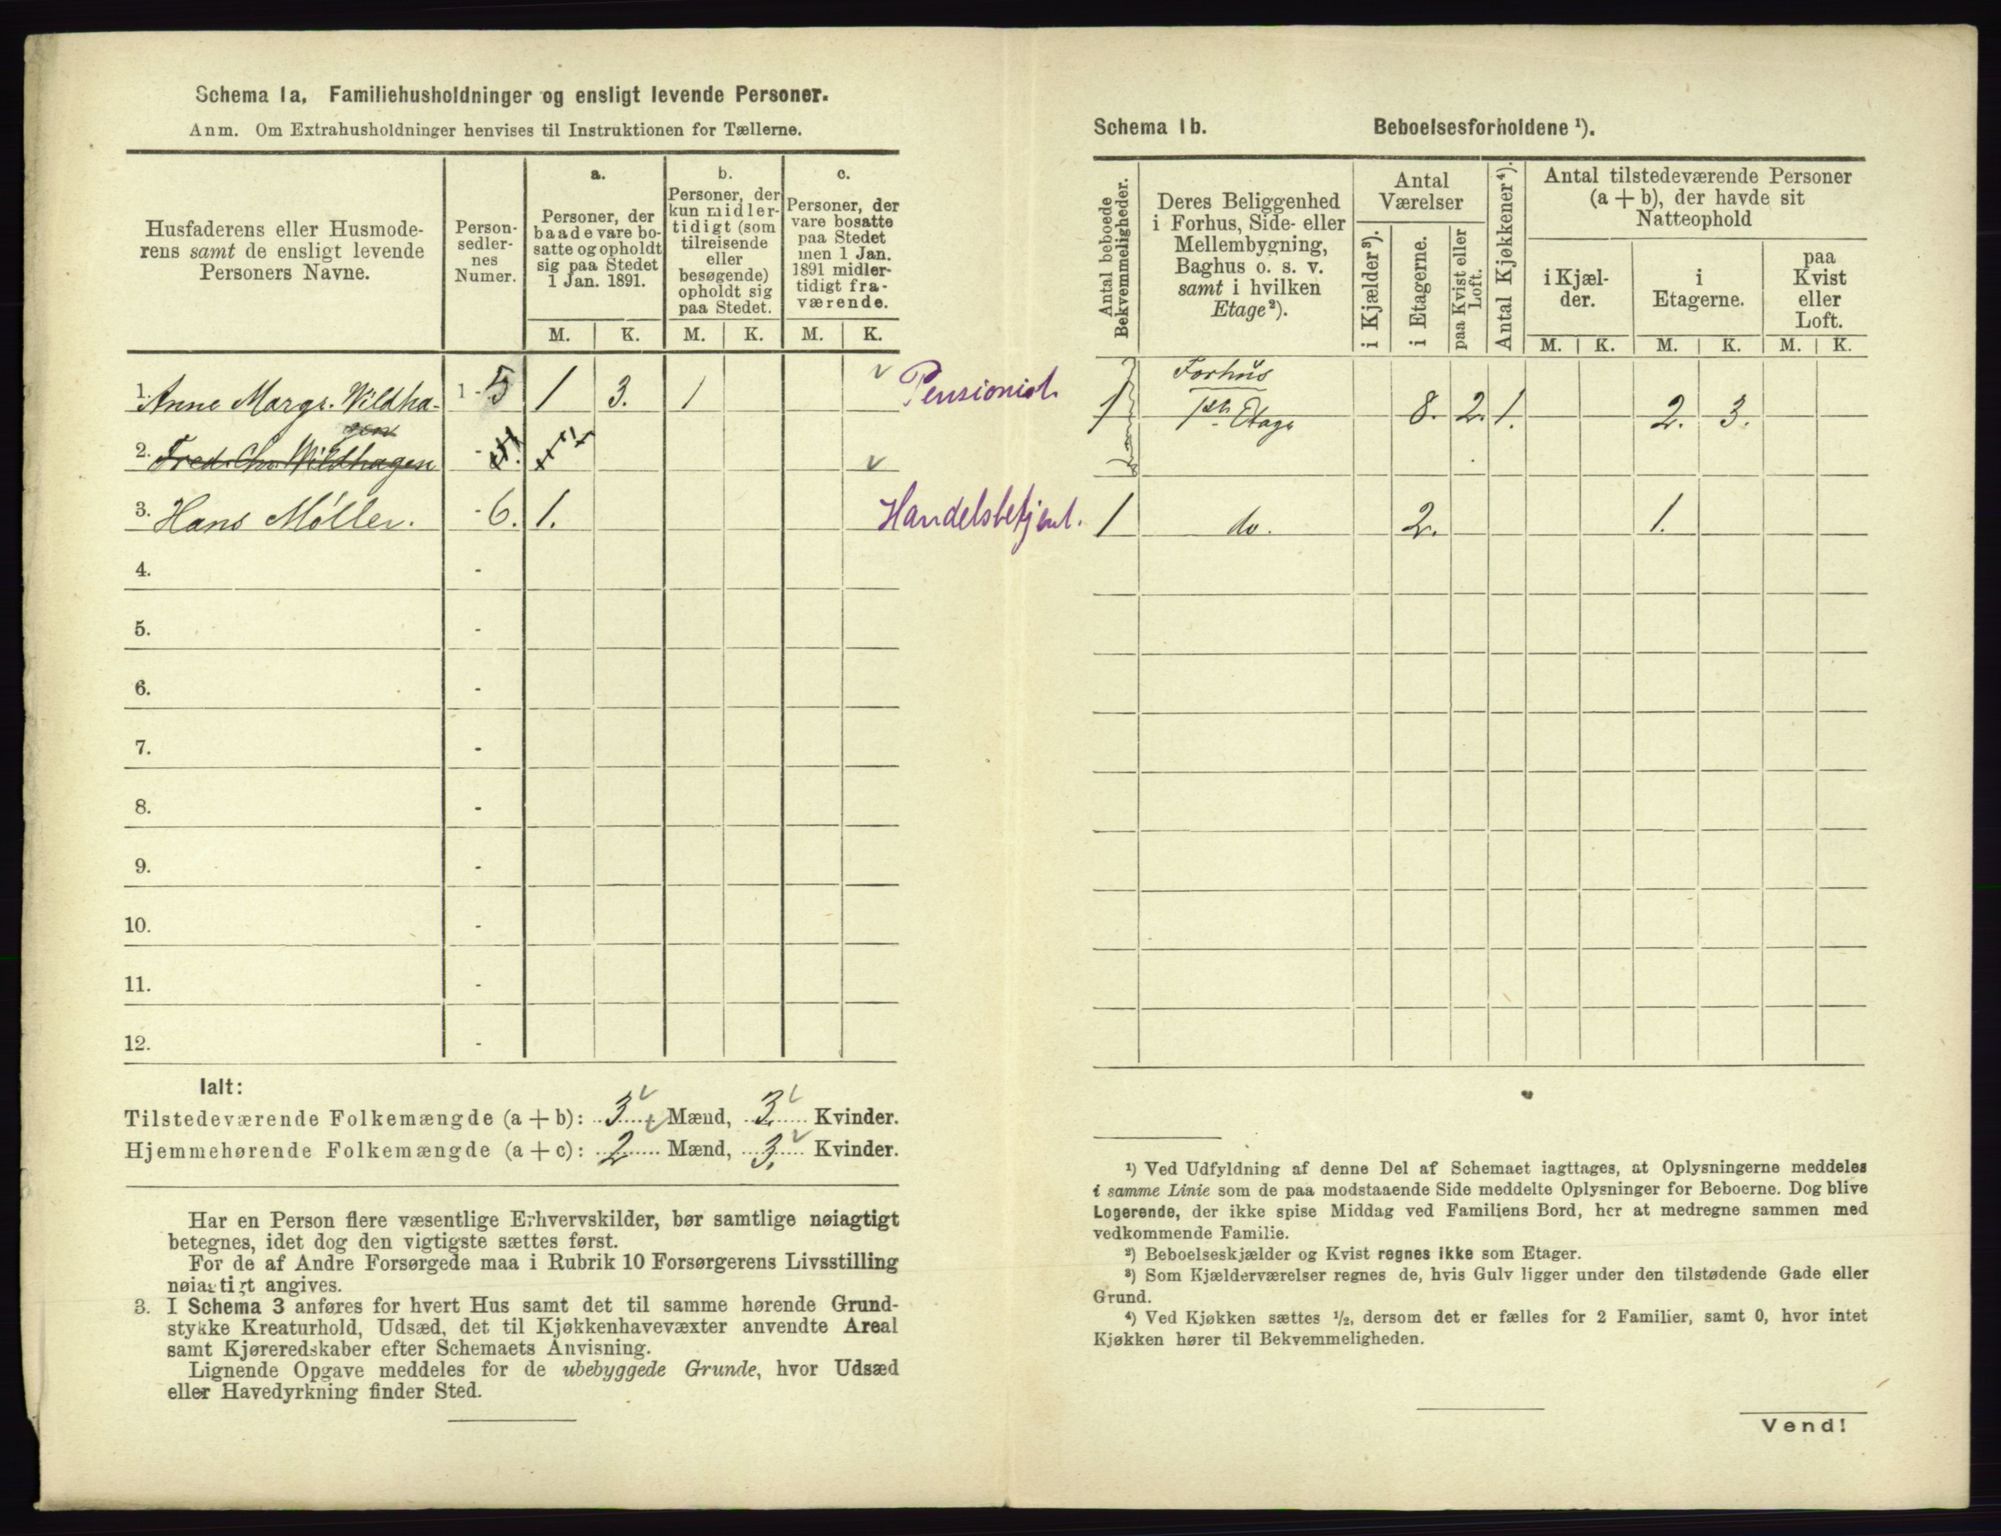 Schema 1a. Familiehusholdninger og ensligt levende Personer.
Anm. Om Extrahusholdninger henvises til Instruktionen for Tællerne.
Husfaderens eller Husmode-
rens samt de ensligt levende
Personers Navne.
Person-
sedler-
nes
Numer.
a.
Personer, der
baade vare bo-
satte og opholdt
sig paa Stedet
1 Jan. 1891.
b.
Personer, der
kun midler-
tidigt (som
tilreisende
eller
besøgende)
opholdt sig
paa Stedet.
c.
Personer, der
vare bosatte
paa Stedet
men 1 Jan.
1891 midler-
tidigt fra-
værende.
M. K. M. K. M. K.
1. Anne Margr. Wildha- 1 - 5 1 3. 1 Pensionist.
gen
2. Fred. Chr. Wildhagen -
3. Hans Møller. - 6. 1. Handelsbetjent.
4. -
5. -
6. -
7. -
8. -
9. -
10. -
11. -
12. -
Ialt:
Tilstedeværende Folkemængde (a + b): 3 Mænd, 3. Kvinder.
Hjemmehørende Folkemængde (a + c): 2 Mænd, 3. Kvinder.
Har en Person flere væsentlige Erhvervskilder, bør samtlige nøiagtigt
betegnes, idet dog den vigtigste sættes først.
For de af Andre Forsørgede maa i Rubrik 10 Forsørgerens Livsstilling
nøiagtigt angives.
3. I Schema 3 anføres for hvert Hus samt det til samme hørende Grund-
stykke Kreaturhold, Udsæd, det til Kjøkkenhavevæxter anvendte Areal
samt Kjøreredskaber efter Schemaets Anvisning.
Lignende Opgave meddeles for de ubebyggede Grunde, hvor Udsæd
eller Havedyrkning finder Sted.
Schema 1b. Beboelsesforholdene ¹).
Antal beboede
Bekvemmeligheder.
Deres Beliggenhed
i Forhus, Side- eller
Mellembygning,
Baghus o. s. v.
samt i hvilken
Etage²).
Antal
Værelser
i Kjælder³).
i Etagerne.
paa Kvist eller
Loft.
Antal Kjøkkener⁴).
Antal tilstedeværende Personer
(a + b), der havde sit
Natteophold
i Kjæl-
der.
i
Etagerne.
paa
Kvist
eller
Loft.
M. K. M. K. M. K.
Forhus
1 1ste Etage 8. 2. 1. 2. 3.
1 do. 2. 1.
¹) Ved Udfyldning af denne Del af Schemaet iagttages, at Oplysningerne meddeles
i samme Linie som de paa modstaaende Side meddelte Oplysninger for Beboerne. Dog blive
Logerende, der ikke spise Middag ved Familiens Bord, her at medregne sammen med
vedkommende Familie.
²) Beboelseskjælder og Kvist regnes ikke som Etager.
³) Som Kjælderværelser regnes de, hvis Gulv ligger under den tilstødende Gade eller
Grund.
⁴) Ved Kjøkken sættes ½, dersom det er fælles for 2 Familier, samt 0, hvor intet
Kjøkken hører til Bekvemmeligheden.
Vend!